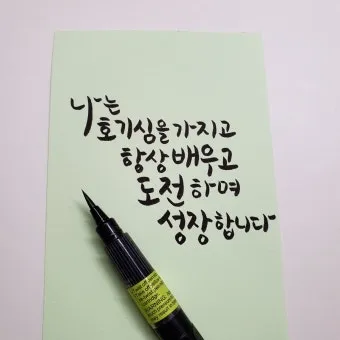 나는
호기심을 가지고
항상 배우고
도전하며
성장합니다